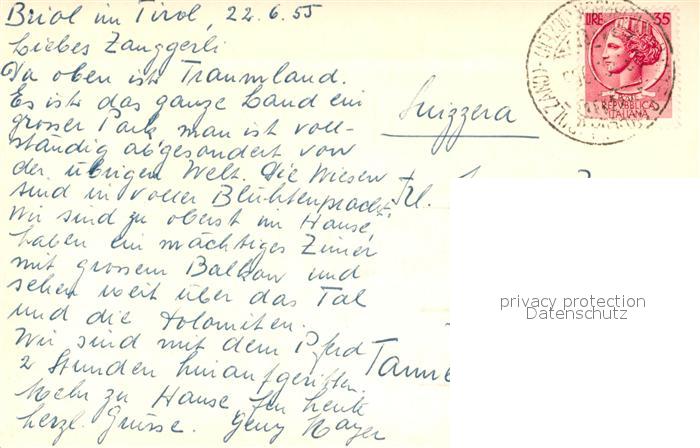 Briol im Tirol, 22.6.55
Liebes Zanggerli
Da oben ist Traumland.
Es ist das ganze Land ein
grosser Park, man ist voll-
ständig abgesondert von
der übrigen Welt. Die Wiesen
sind in voller Blühtenpracht.
Wir sind zu oberst im Hause,
haben ein mächtiges Zimer
mit grossem Balkon und
sehen weit über das Tal
und die Dolomiten.
Wir sind mit dem Pferd
2 Stunden hinaufgeritten.
Mehr zu Hause für heute
herzl. Grüsse.
Suizzera
Frl.
LIRE 35
REPUBBLICA
ITALIANA
privacy protection
Datenschutz